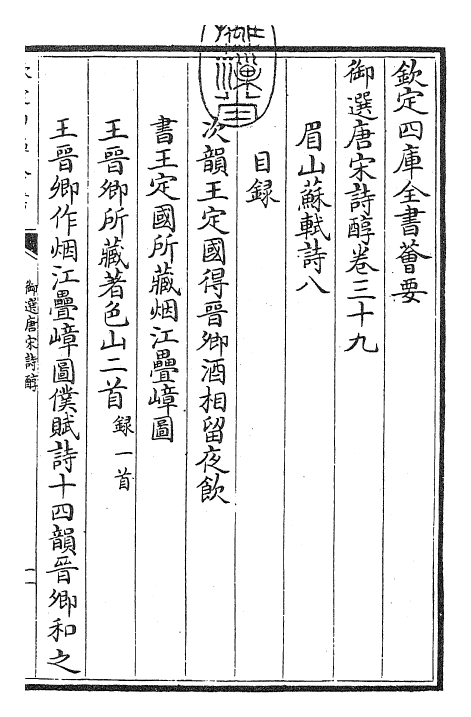 欽定四庫全書薈要
御選唐宋詩醇卷三十九
眉山蘇軾詩八
目録
次韻王定國得晉卿酒相留夜飲
書王定國所藏烟江疊嶂圖
王晉卿所藏著色山二首 録一首
王晉卿作烟江疊嶂圖僕賦詩十四韻晉卿和之
御選唐宋詩醇